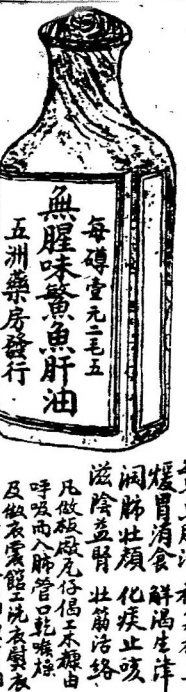 每磚壹元二毛五
無腥味鰵魚肝油
五洲藥房發行
煖胃消食 解渴生津
潤肺壯顏 化痰止咳
滋陰益腎 壯筋活絡
凡做板廠瓦仔偈工木糠由
呼吸而入肺管口乾喉燥
及做衣裳館工洗衣熨衣